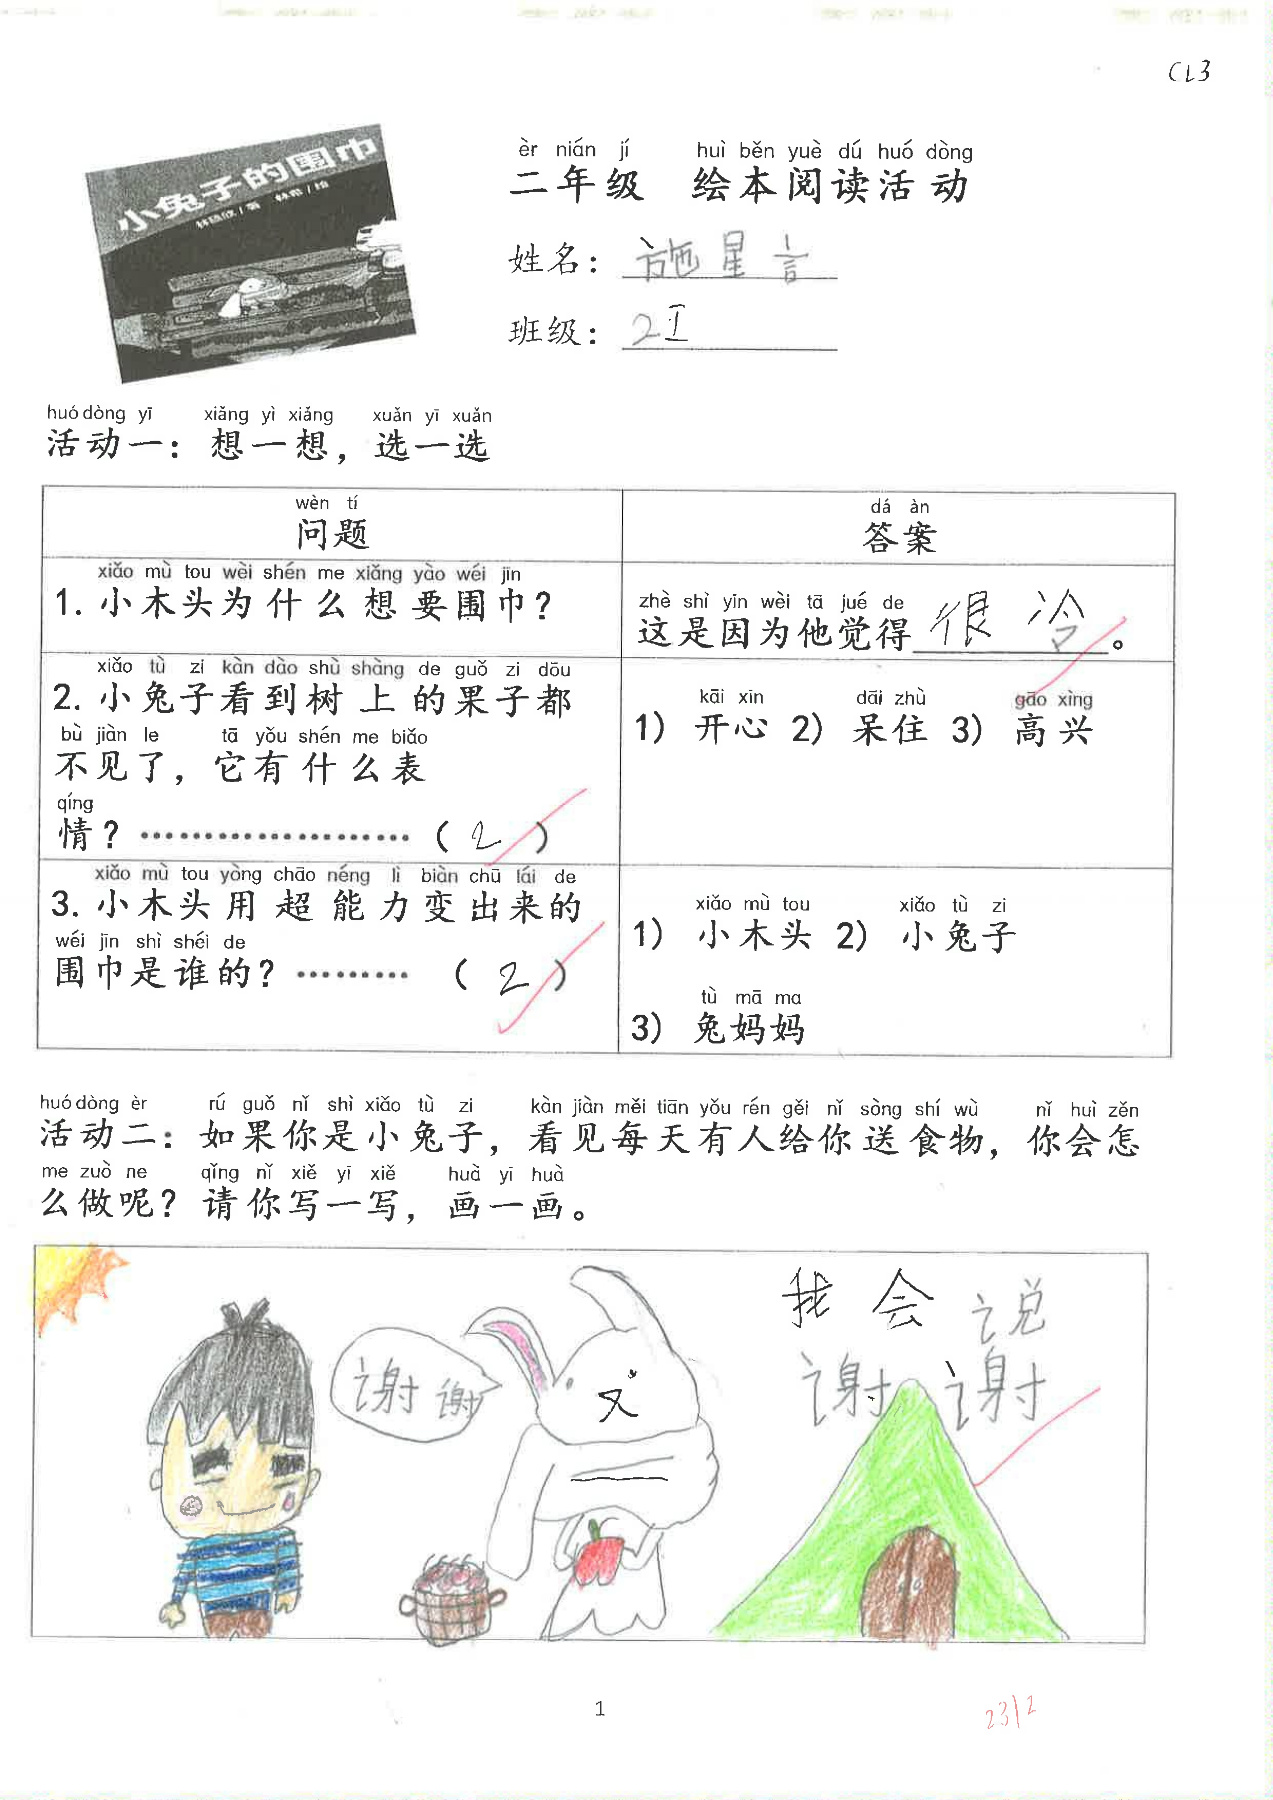 CL3
小兔子的围巾
èr nián jí huì běn yuè dú huó dòng
二年级 绘本阅读活动
姓名：施星言
班级：2I
huó dòng yī xiǎng yì xiǎng xuǎn yī xuǎn
活动一：想一想，选一选
wèn tí
问题
dá àn
答案
xiǎo mù tou wèi shén me xiǎng yào wéi jīn
1. 小木头为什么想要围巾？
zhè shì yīn wèi tā jué de
这是因为他觉得很冷。
xiǎo tù zi kàn dào shù shàng de guǒ zi dōu
2. 小兔子看到树上的果子都
bù jiàn le tā yǒu shén me biǎo
不见了，它有什么表
qíng
情？ ····················（2）
kāi xīn dāi zhù gāo xìng
1） 开心 2） 呆住 3） 高兴
xiǎo mù tou yòng chāo néng lì biàn chū lái de
3. 小木头用超能力变出来的
wéi jīn shì shéi de
围巾是谁的？ ·········（2）
xiǎo mù tou xiǎo tù zi
1） 小木头 2） 小兔子
tù mā ma
3） 兔妈妈
huó dòng èr rú guǒ nǐ shì xiǎo tù zi kàn jiàn měi tiān yǒu rén gěi nǐ sòng shí wù nǐ huì zěn
活动二：如果你是小兔子，看见每天有人给你送食物，你会怎
me zuò ne qǐng nǐ xiě yī xiě huà yī huà
么做呢？请你写一写，画一画。
谢谢
我会说
谢谢
1
23/2